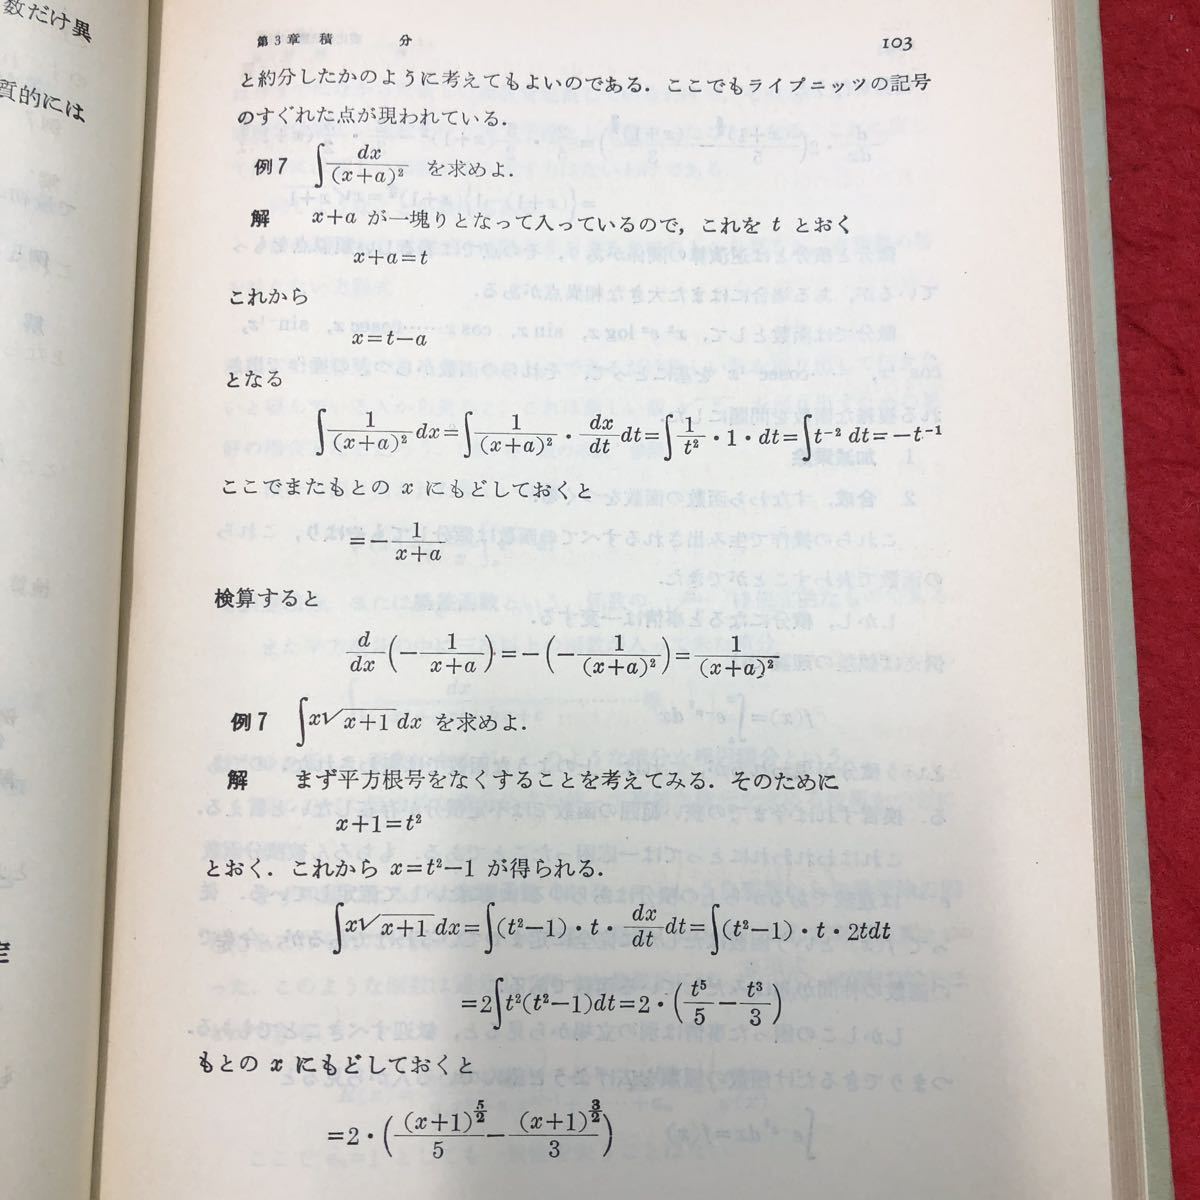 数だけ異
質的には
第3章 積 分 103
と約分したかのように考えてもよいのである．ここでもライプニッツの記号
のすぐれた点が現われている．
例7 ∫dx/(x+a)² を求めよ．
解 x+a が一塊りとなって入っているので，これを t とおく
x+a=t
これから
x=t−a
となる
∫1/(x+a)² dx=∫1/(x+a)²・dx/dt dt=∫1/t²・1・dt=∫t⁻² dt=−t⁻¹
ここでまたもとの x にもどしておくと
=−1/(x+a)
検算すると
d/dx(−1/(x+a))=−(−1/(x+a)²)=1/(x+a)²
例7 ∫x√(x+1) dx を求めよ．
解 まず平方根号をなくすることを考えてみる．そのために
x+1=t²
とおく．これから x=t²−1 が得られる．
∫x√(x+1) dx=∫(t²−1)・t・dx/dt dt=∫(t²−1)・t・2tdt
=2∫t²(t²−1)dt=2・(t⁵/5−t³/3)
もとの x にもどしておくと
=2・((x+1)^(5/2)/5−(x+1)^(3/2)/3)